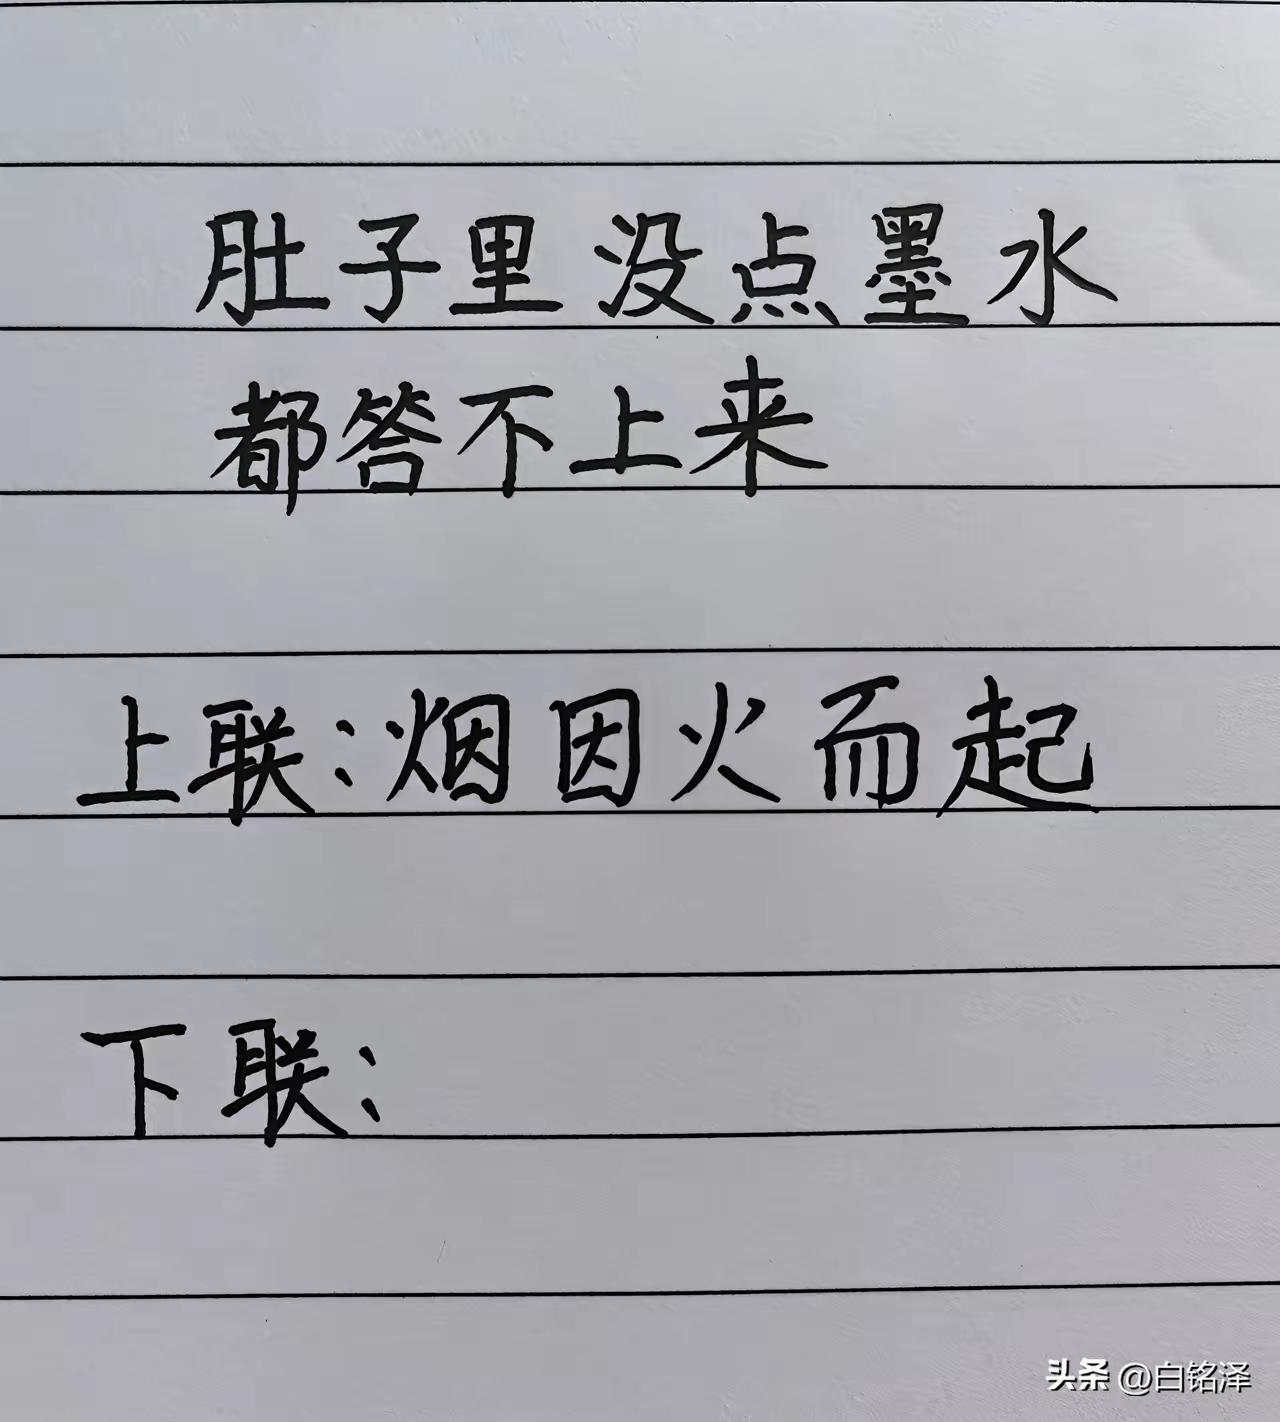 肚子里没点墨水
都答不上来
上联:烟因火而起
下联:
头条 @白铭泽